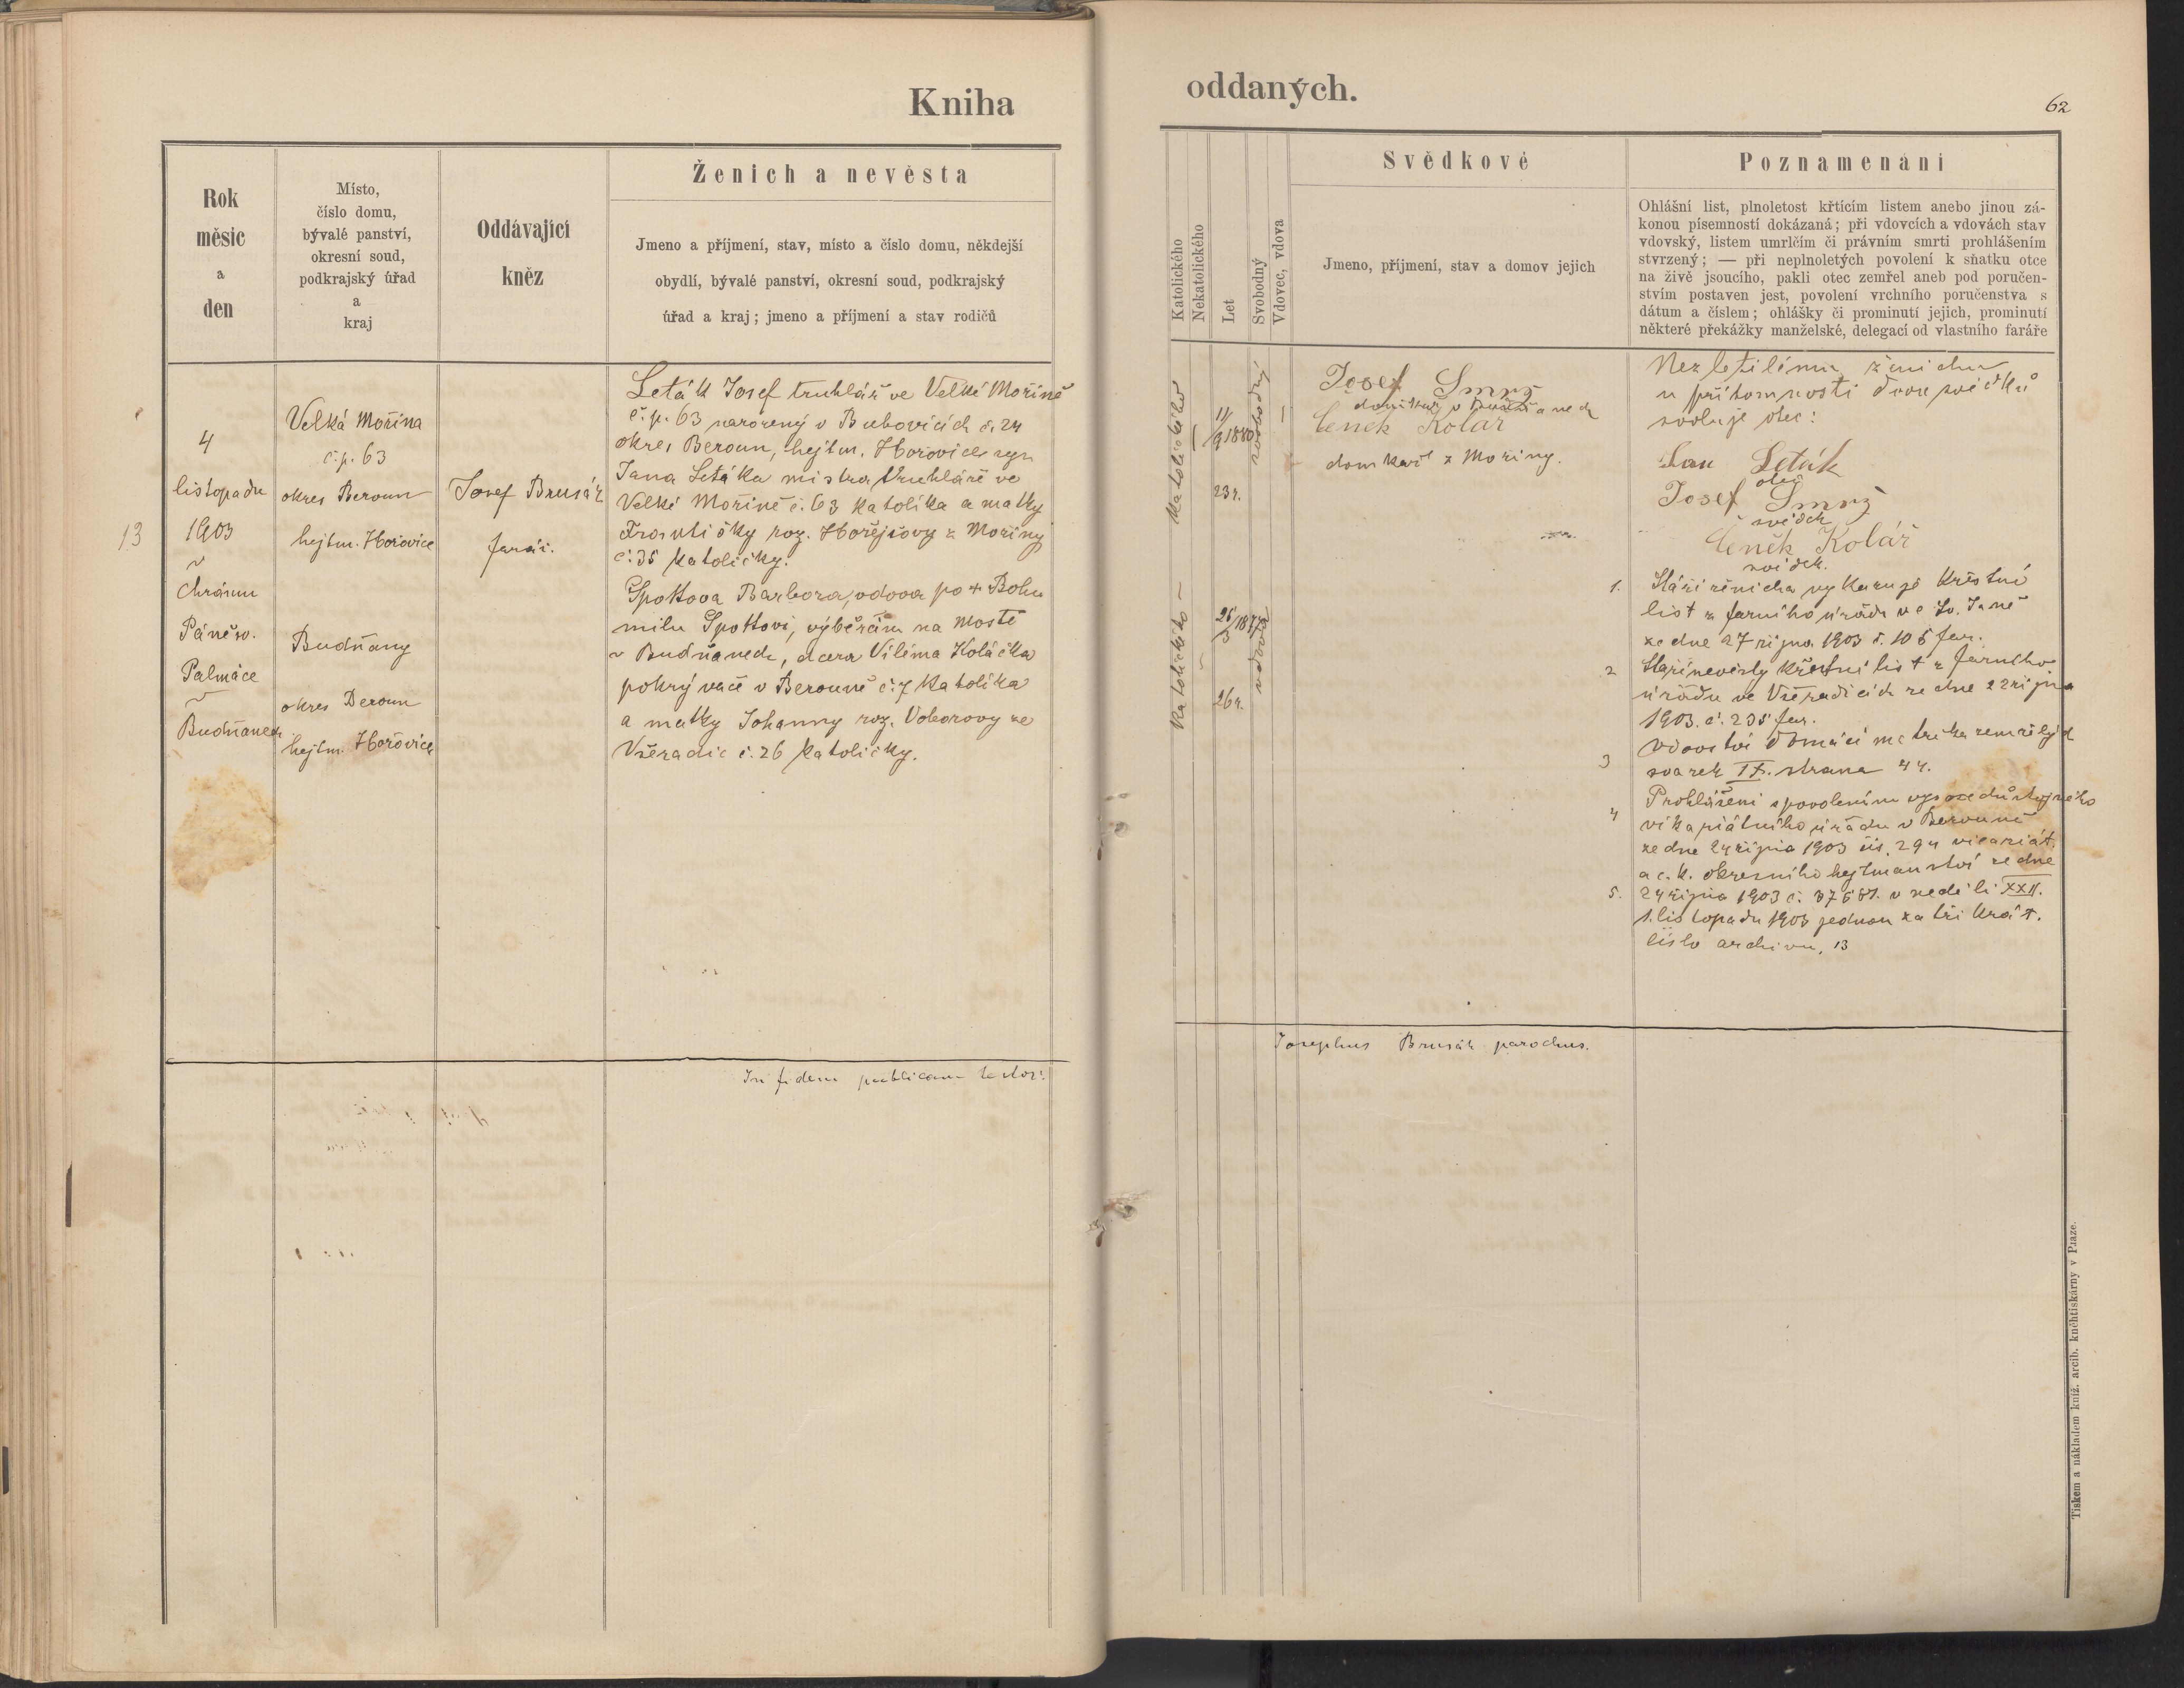 Kniha
oddaných.
62
Rok
měsíc
a
den
Místo,
číslo domu,
bývalé panství,
okresní soud,
podkrajský úřad
a
kraj
Oddávající
kněz
Ženich a nevěsta
Jmeno a příjmení, stav, místo a číslo domu, někdejší
obydlí, bývalé panství, okresní soud, podkrajský
úřad a kraj; jmeno a příjmení a stav rodičů
Katolického
Nekatolického
Let
Svobodný
Vdovec, vdova
Svědkové
Jmeno, příjmení, stav a domov jejich
Poznamenání
Ohlášní list, plnoletost křtícím listem anebo jinou zá-
konou písemností dokázaná; při vdovcích a vdovách stav
vdovský, listem umrlčím či právním smrti prohlášením
stvrzený; — při neplnoletých povolení k sňatku otce
na živě jsoucího, pakli otec zemřel aneb pod poručen-
stvím postaven jest, povolení vrchního poručenstva s
dátum a číslem; ohlášky či prominutí jejich, prominutí
některé překážky manželské, delegací od vlastního faráře
13
4
listopadu
1903
v
Chrámu
Páně sv.
Palmáce
v
Budňanech
Velká Mořina
č. p. 63
okres Beroun
hejtm. Hořovice
Budňany
okres Beroun
hejtm. Hořovice
Josef Brusák
farář.
Leták Josef truhlář ve Velké Mořině
č. p. 63 narozený v Bubovicích č. 24
okres Beroun, hejtm. Hořovice syn
Jana Letáka mistra truhláře ve
Velké Mořině č. 63 katolíka a matky
Františky roz. Hořejšovy z Mořiny
č. 35 katoličky.
Spottova Barbora, vdova po + Bohu
milu Spottovi, výběrčím na mostě
v Budňanech, dcera Viléma Koláčka
pokrývače v Berouně č. 7 katolíka
a matky Johanny roz. Voborovy ze
Všeradic č. 26 katoličky.
Katolického
11/9 1880
23 r.
svobodný
Katolického
26 r.
vdova
Josef Smrž
domkář v Budňanech
Čeněk Kolář
domkář z Mořiny.
Nezletilému ženichu
u přítomnosti dvou svědků
svoluje otec:
Jan Leták
otec
Josef Smrž
svědek
Čeněk Kolář
svědek.
1. Stáří ženicha vykazuje křestní
list z farního úřadu ve Sv. Janě
ze dne 27 října 1903 č. 105 far.
2 Stáří nevěsty křestní list z farního
úřadu ve Všeradicích ze dne 22 října
1903. č. 235 far.
3 Vdovství domácí matrika zemřelých
svazek IX. strana 44.
4 Prohlášeni s povolením vysocedůstojného
vikariátního úřadu v Berouně
ze dne 24 října 1903 čís. 294 vicariát.
a c. k. okresního hejtmanství ze dne
5. 24 října 1903 č. 37687. v neděli XXII.
1. listopadu 1903 jednou za tři krát.
číslo archivu. 13
In fidem publicam testor:
Josephus Brusák parochus.
Tiskem a nákladem kníž. arcib. kněhtiskárny v Praze.